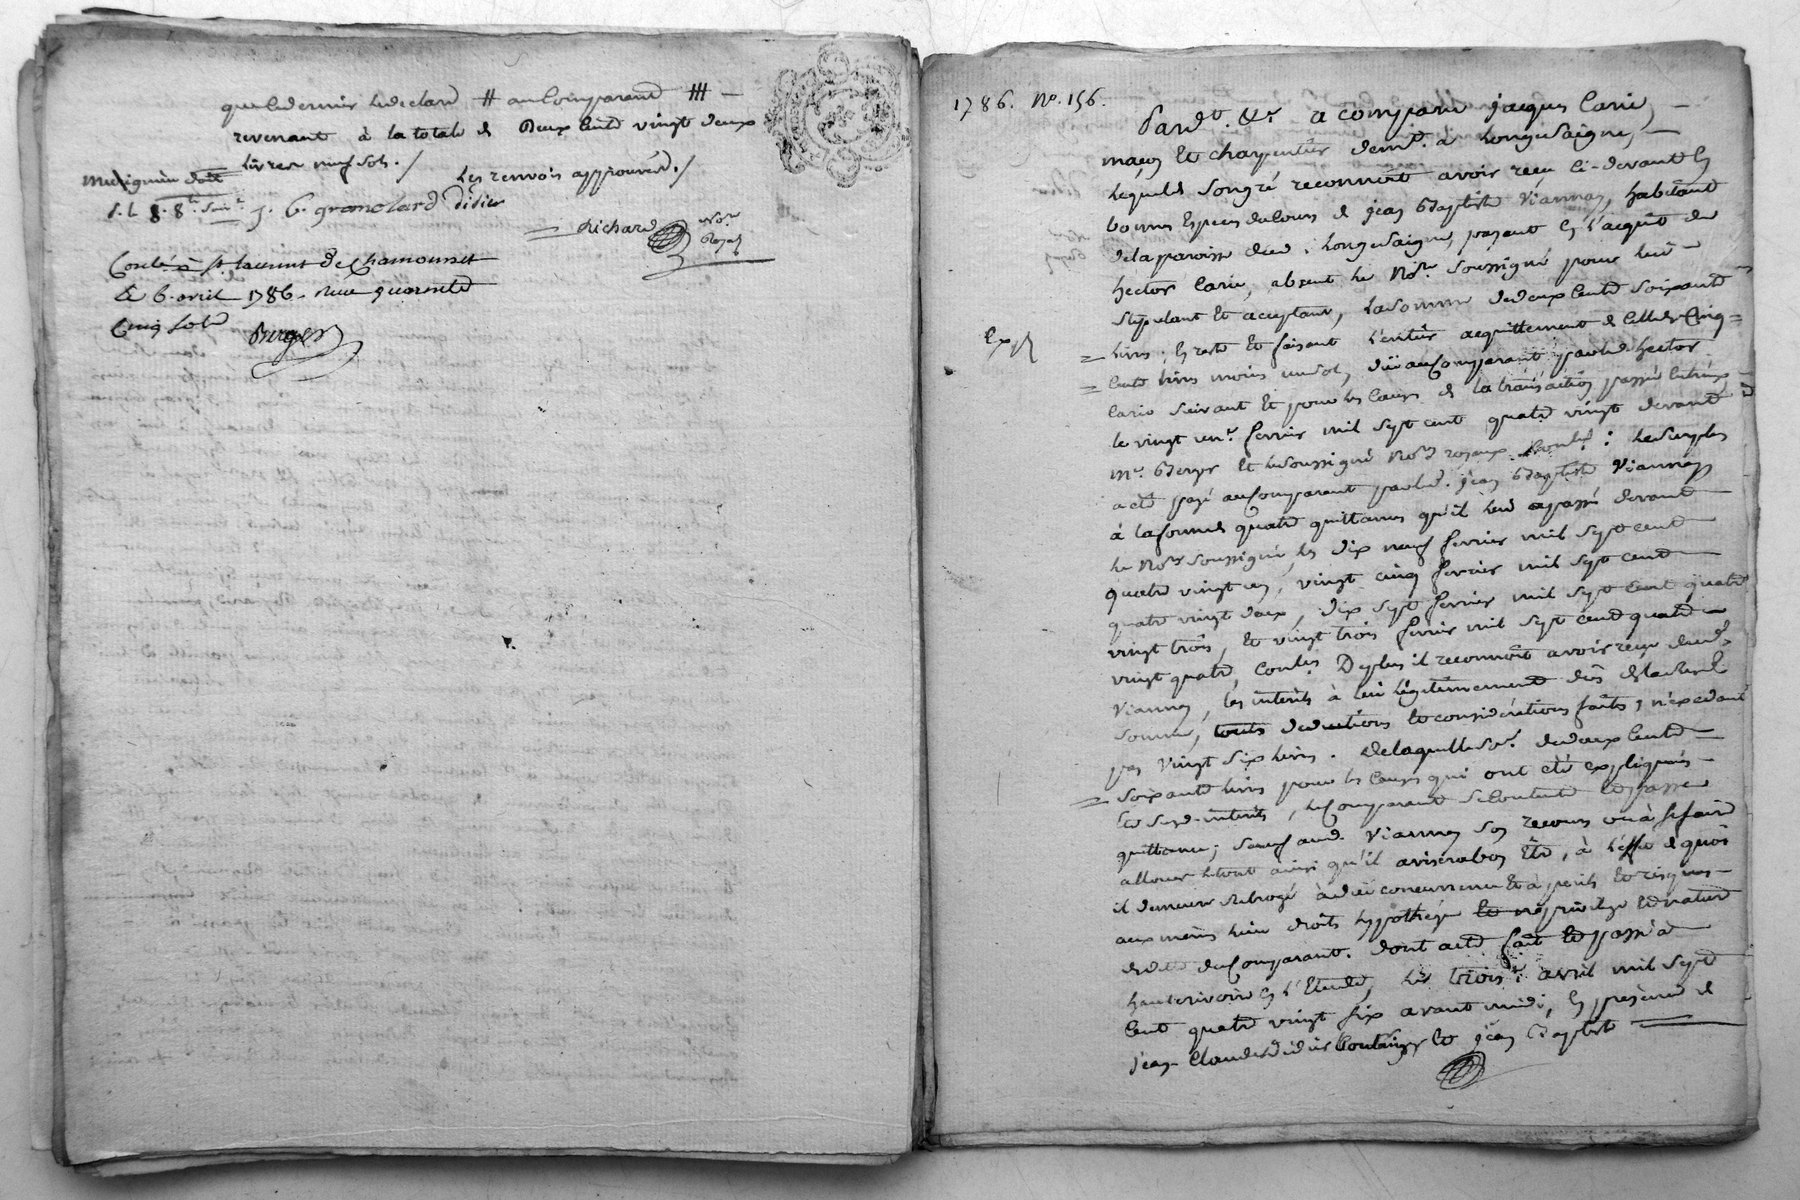 que ledernier ledeclare # au Comparant #
revenant à la totale de Deux Cent vingt deux
Livres neuf sols ./.
Les renvois approuvés ./.
J. C. granotard didier
Richard Nore
Royal
Conlé à St laurent De Chamousset
Le 6. avril 1786. Reçu quarente
Cinq sols Burger
1786. No. 156.
Pardt. &r. a comparu jacques Carie,
maçon Et charpentier demt. a Longesaigne,
Lequel de Songré reconnoit avoir reçu Ci-devant En
bonnes Especes de Cours de jean Baptiste Viannay, habitant
de la paroisse dud. Longesaigne, payant En l'acquit de
hector Carie, absent le Nore. soussigné pour lui
stipulant Et acceptant, La Somme de deux Cents soixante
Exp
Livres; En reste Et faisant L'entier acquittement de Celle de Cinq
Cents livres moins un sol, dûe au Comparant par led. hector
Carie suivant Et pour les Causes de la transaction passée Entr'eux
le vingt un. fevrier mil sept cent quatre vingt devant
Me. Berger Et le soussigné Nores royaux Conlé: Le surplus
a été payé au Comparant par led. jean Baptiste Viannay
à la forme de quatre quittances qu'il lui a passé devant
le Nore soussigné, les dix neuf fevrier mil sept cent
quatre vingt un, vingt cinq fevrier mil sept cent
quatre vingt deux, dix sept fevrier mil sept Cent quatre
vingt trois, Et vingt trois fevrier mil sept cent quatre
vingt quatre, Conlés Deplus il reconnoit avoir reçu dud.
Viannay, les interets à lui légitimement dûs de la susd.
somme, touts deductions Et considérations faites, n'excedant
pas Vingt Six livres. De laquelle So. de deux Cents
soixante livres pour les Causes qui ont été expliquées
Et desd. interets, le Comparant se Contente Et passe
quittance; sauf aud. Viannay son recours ou à se faire
allouer le tout ainsi qu'il avisera bon Etre, à l'effet de quoi
il demeure subrogé à due concurrence Et à perils Et risques
aux mêmes lieu droits hypotheque Et privilege Et nature
de dette du Comparant. Dont acte fait Et passé à
hauterivoire En l'Etude, Le trois. avril mil sept
Cent quatre vingt six avant midi; En présence de
jean-Claude didier Boulanger Et jean Baptiste